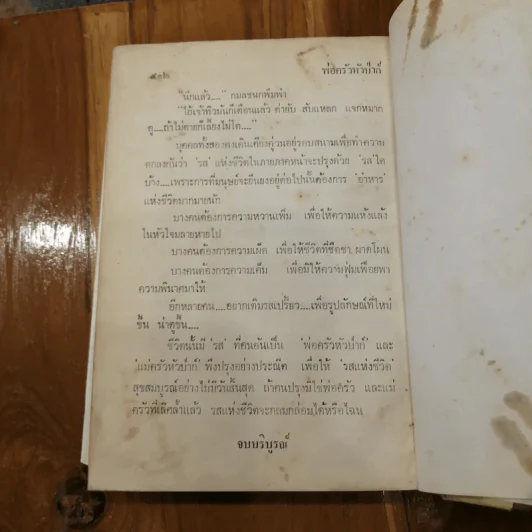 ๕๑๒
พ่อครัวหัวป่าก์
"นึกแล้ว....." กมลชนกพึมพำ
"ไอ้เจ้าทิวมันก็เตือนแล้ว ค่ายับ สับแหลก แจกหมาก
ดู.....ถ้าไม่ตายก็เลี้ยงไม่โต....."
บุคคลทั้งสองคงเดินเคียงคู่วนอยู่รอบสนามเพื่อทำความ
ตกลงกันว่า 'รส' แห่งชีวิตในภายภาคหน้าจะปรุงด้วย 'รส' ใด
บ้าง.....เพราะการที่มนุษย์จะยืนยงอยู่ต่อไปนั้นต้องการ 'อาหาร'
แห่งชีวิตมากมายนัก
บางคนต้องการความหวานเพิ่ม เพื่อให้ความแห้งแล้ง
ในหัวใจมลายหายไป
บางคนต้องการความเผ็ด เพื่อให้ชีวิตที่ชืดชา ผาดโผน
บางคนต้องการความเค็ม เพื่อมิให้ความฟุ่มเฟือยพา
ความพินาศมาให้
อีกหลายคน.....อยากเติมรสเปรี้ยว.....เพื่อรูปลักษณ์ที่ใหม่
ขึ้น น่าดูขึ้น.....
ชีวิตนั้นมี 'รส' ที่คนอันเป็น 'พ่อครัวหัวป่าก์' และ
'แม่ครัวหัวป่าก์' พึงปรุงอย่างประณีต เพื่อให้ 'รสแห่งชีวิต'
สุขสมบูรณ์อย่างไม่มีวันสิ้นสุด ถ้าคนปรุงมิใช่พ่อครัว และแม่
ครัวที่เลิศล้ำแล้ว รสแห่งชีวิตจะกลมกล่อมได้หรือไฉน
จบบริบูรณ์